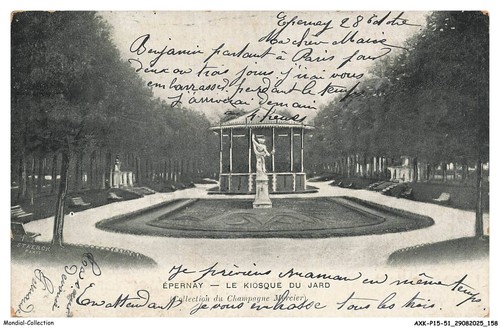 Epernay 28 Octobre
Ma chère Marie
Benjamin partant à Paris pour
deux ou trois jours j'irai vous
embrasser pendant le temps
j'arriverai demain
à 4 heures
STTERCK
PARIS
ÉPERNAY — LE KIOSQUE DU JARD
(Collection du Champagne Mercier)
Je préviens maman en même temps
En attendant je vous embrasse tous les trois.
Mondial-Collection
AXK-P15-51_29082025_158